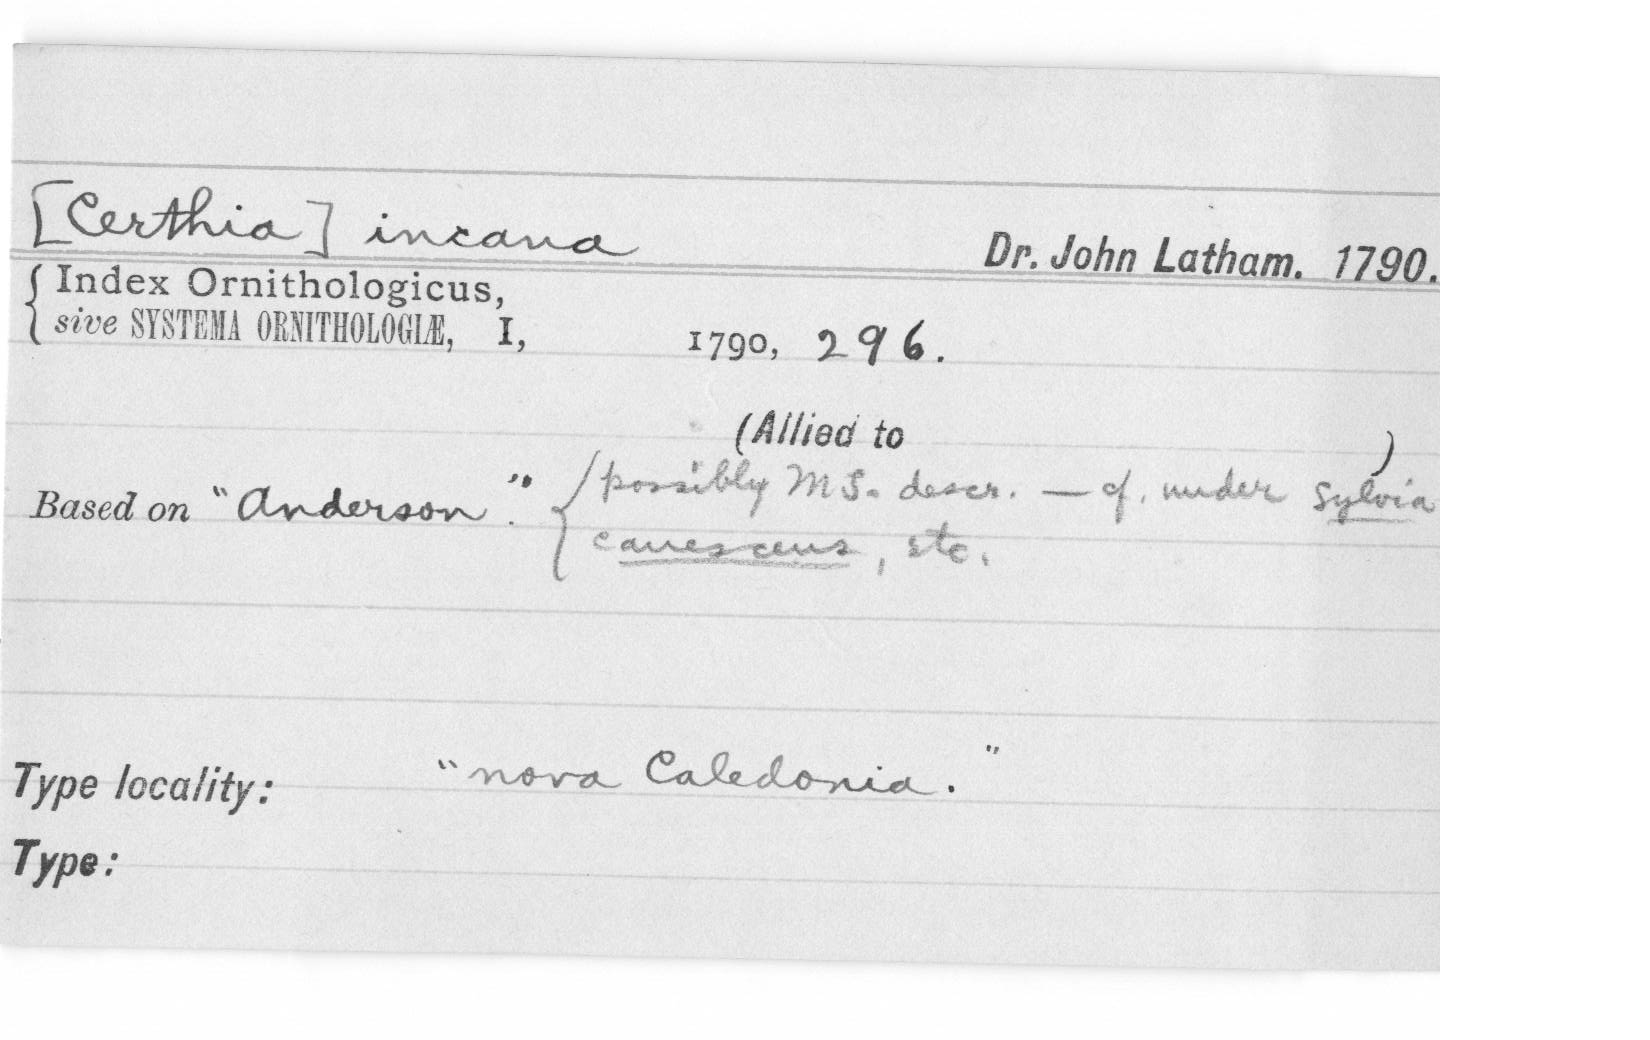 [Certhia] incana Dr. John Latham. 1790.
Index Ornithologicus,
sive SYSTEMA ORNITHOLOGIÆ, I, 1790, 296.
(Allied to )
Based on "Anderson." possibly MS. descr. — cf. under Sylvia
canescens, etc.
Type locality: "nova Caledonia."
Type: